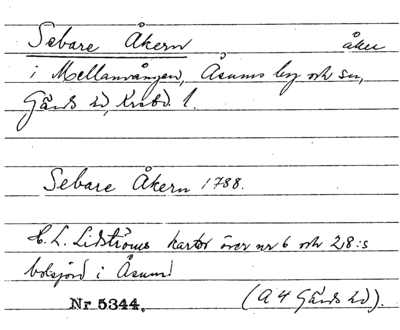 Sebare Åkern åker
i Mellanvången, Åsums by och sn,
Gärds hd, Krist. l.
Sebare Åkern 1788.
C. L. Lidströms kartor över nr 6 och 28:s
bolsjord i Åsum
Nr 5344. (A 4 Gärds hd).